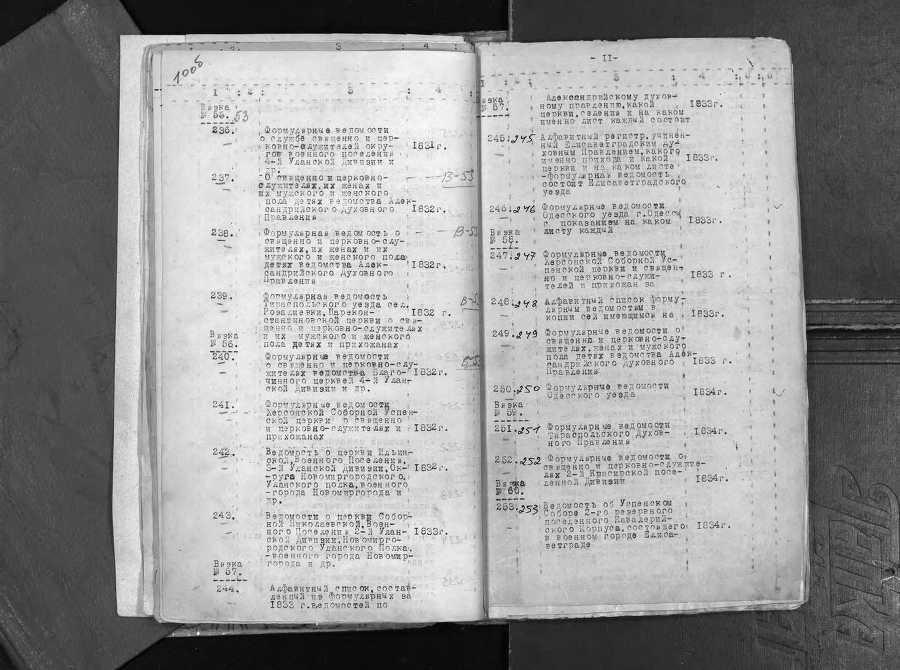 1006
3 : 4 :
1 : 2 : 3 : 4 :
Вязка
№ 55. 53
236. Формулярные ведомости
о службе священно и цер-
ковно-служителей окру-
гов военного поселения 1831г.
4-й Уланской Дивизии и
др.
237. О священно и церковно-
служителях, их женах и
их мужского и женского
пола детях ведомства Алек-
сандрийского Духовного 1832г.
Правления
238. Формулярная ведомость о
священно и церковно-слу-
жителях, их женах и их
мужского и женского пола
детях ведомства Алек- 1832г.
сандрийского Духовного
Правления
239. Формулярная ведомость
Тираспольского уезда сел.
Розалиевки, Царекон- 1832 г.
стантиновской церкви о свя-
щенно и церковно-служителях
и их мужского и женского
пола детях и прихожанах
Вязка
№ 56.
240. Формулярные ведомости
о священно и церковно-слу-
жителях ведомства Благо- 1832г.
чинного церквей 4-й Улан-
ской Дивизии и др.
241. Формулярные ведомости
Херсонской Соборной Успен-
ской церкви о священно
и церковно-служителях и 1832г.
прихожанах
242. Ведомость о церкви Ильин-
ской, Военного Поселения,
3-й Уланской Дивизии, Ок- 1832г.
-руга Новомиргородского,
Уланского полка, военного
-города Новомиргорода и
др.
243. Ведомости о церкви Собор-
ной Николаевской, Воен-
ного Поселения 2-й Улан- 1833г.
ской Дивизии, Новомирго-
родского Уланского Полка,
-военного города Новомир-
города и др.
Вязка
№ 57.
244. Алфавитный список, состав-
ленный из Формулярных за
1833 г. ведомостей по
- II-
3 : 4 :
Вязка
№ 57.
Александрийскому духов-
ному правлению, какой 1833г.
церкви, селения и на каком
именно лист каждый состоит
245. 245 Алфавитный регистр, учинен-
ный Елисаветградским Ду-
ховным Правлением, какого
именно прихода и какой 1833г.
церкви и на каком листе
-Формулярная ведомость
состоит Елисаветградского
уезда
246. 246 Формулярные ведомости
Одесского уезда г. Одессы
с показанием на каком 1833г.
листу каждый
Вязка
№ 58.
247. 247 Формулярные ведомости
Херсонской Соборной Ус-
пенской церкви и священ-
но и церковно-служи- 1833 г.
телей и прихожан за
248. 248 Алфавитный список форму-
лярным ведомостям в
копии сей имеющимся на 1833г.
249. 249 Формулярные ведомости о
священно и церковно-слу-
жителях, женах и мужского
пола детях ведомства Алек-
сандрийского Духовного 1833 г.
Правления
250. 250 Формулярные ведомости
Одесского уезда 1834г.
Вязка
№ 59.
251. 251 Формулярные ведомости
Тираспольского Духов- 1834г.
ного Правления
252. 252 Формулярные ведомости о
священно и церковно-служите-
лях 2-й Кирасирской посе-
ленной Дивизии 1834г.
Вязка
№ 60.
253. 253 Ведомость об Успенском
Соборе 2-го резервного
поселенного Кавалерий-
ского Корпуса, состоящего 1834г.
в военном городе Елиса-
ветграде